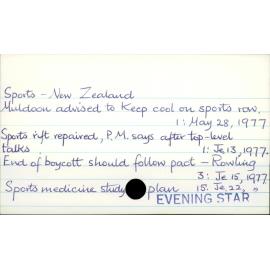 Sports - New Zealand
Muldoon advised to keep cool on sports row.
1: May 28, 1977
Sports rift repaired, P.M. says after top-level
talks 1: Je 13, 1977.
End of boycott should follow pact - Rowling
3: Je 15, 1977
Sports medicine study plan 15: Je 22, "
EVENING STAR